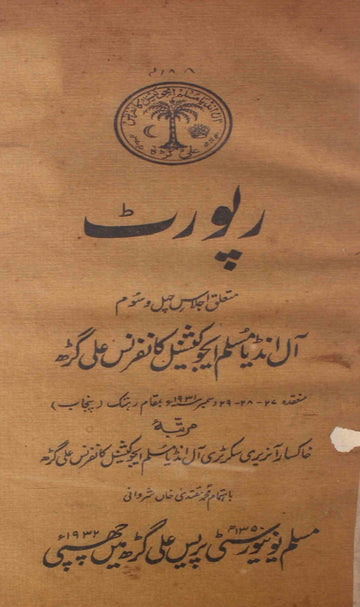 رپورٹ
متعلق اجلاس چہل و سوم
آل انڈیا مسلم ایجوکیشنل کانفرنس علی گڑھ
منعقدہ ۲۷-۲۸-۲۹ دسمبر ۱۹۳۱ء بمقام رہتک (پنجاب)
مرتبہ
خاکسار آنریری سکرٹری آل انڈیا مسلم ایجوکیشنل کانفرنس علی گڑھ
باہتمام محمد مقتدی خاں شروانی
مسلم یونیورسٹی پریس علی گڑھ میں چھپی
۱۳۵۰ھ ۱۹۳۲ء